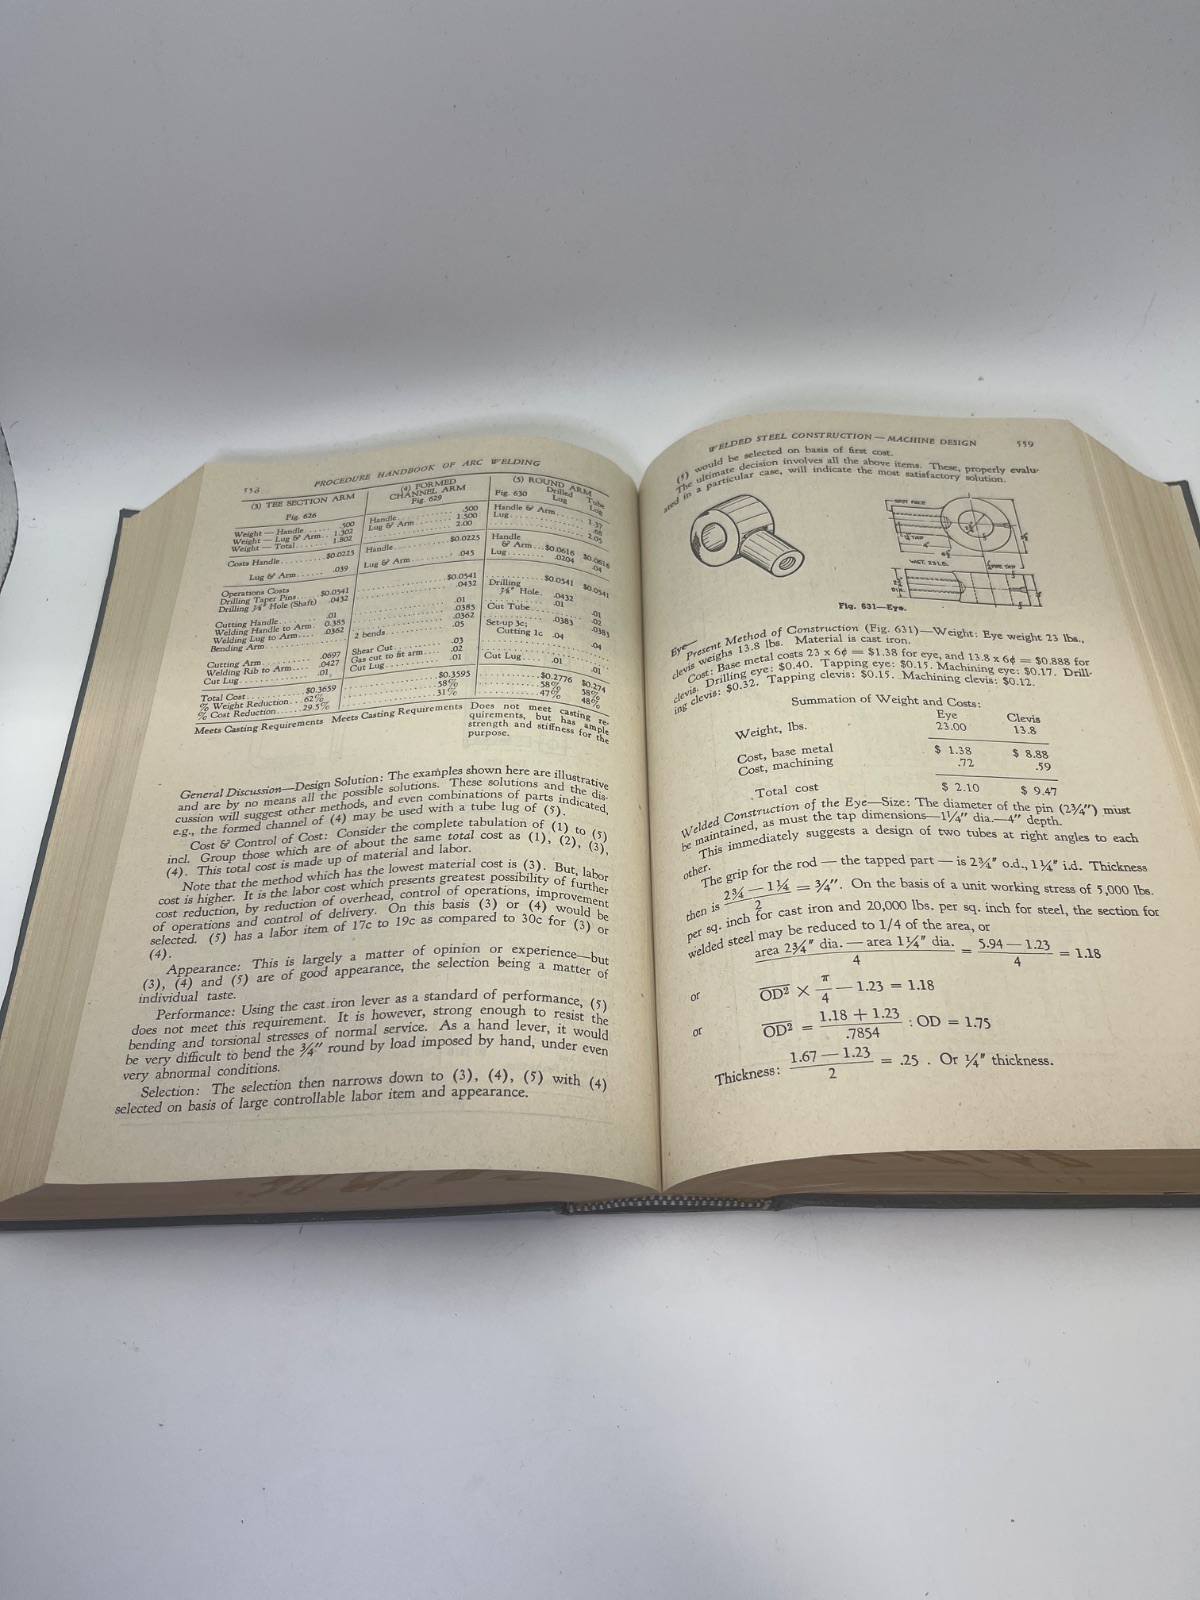 558 PROCEDURE HANDBOOK OF ARC WELDING
(3) TEE SECTION ARM
Fig. 626
Weight — Handle...... .500
Weight — Lug & Arm.. 1.302
Weight — Total........ 1.802
Costs Handle........... $0.0225
Lug & Arm...... .039
Operations Costs
Drilling Taper Pins.... $0.0541
Drilling ⅞" Hole (Shaft) .0432
Cutting Handle........ .01
Welding Handle to Arm. 0.385
Welding Lug to Arm... .0362
Bending Arm
Cutting Arm........... .0697
Welding Rib to Arm.... .0427
Cut Lug............... .01
Total Cost............ $0.3659
% Weight Reduction... 62%
% Cost Reduction...... 29.5%
Meets Casting Requirements
(4) FORMED
CHANNEL ARM
Fig. 629
.500
Handle........ 1.500
Lug & Arm..... 2.00
Handle........ $0.0225
Lug & Arm ..... .045
$0.0541
.0432
.01
.0385
.0362
2 bends........ .05
Shear Cut...... .03
Gas cut to fit arm.... .02
Cut Lug........ .01
$0.3595
58%
31%
Meets Casting Requirements
(5) ROUND ARM
Fig. 630 Drilled Lug Tube Lug
Handle & Arm.... 1.37
Lug.............. .68
2.05
Handle
& Arm...$0.0616 $0.0616
Lug........ .0204 .04
$0.0541 $0.0541
Drilling
⅞" Hole. .0432
.01 .01
Cut Tube........ .02
.0383 .0383
Set-up 3c;
Cutting 1c .04 .04
Cut Lug..... .01 .01
$0.2776 $0.274
58% 58%
47% 48%
Does not meet casting re-
quirements, but has ample
strength and stiffness for the
purpose.
General Discussion—Design Solution: The examples shown here are illustrative
and are by no means all the possible solutions. These solutions and the dis-
cussion will suggest other methods, and even combinations of parts indicated,
e.g., the formed channel of (4) may be used with a tube lug of (5).
Cost & Control of Cost: Consider the complete tabulation of (1) to (5)
incl. Group those which are of about the same total cost as (1), (2), (3),
(4). This total cost is made up of material and labor.
Note that the method which has the lowest material cost is (3). But, labor
cost is higher. It is the labor cost which presents greatest possibility of further
cost reduction, by reduction of overhead, control of operations, improvement
of operations and control of delivery. On this basis (3) or (4) would be
selected. (5) has a labor item of 17c to 19c as compared to 30c for (3) or
(4).
Appearance: This is largely a matter of opinion or experience—but
(3), (4) and (5) are of good appearance, the selection being a matter of
individual taste.
Performance: Using the cast iron lever as a standard of performance, (5)
does not meet this requirement. It is however, strong enough to resist the
bending and torsional stresses of normal service. As a hand lever, it would
be very difficult to bend the ¾" round by load imposed by hand, under even
very abnormal conditions.
Selection: The selection then narrows down to (3), (4), (5) with (4)
selected on basis of large controllable labor item and appearance.
WELDED STEEL CONSTRUCTION — MACHINE DESIGN 559
(5) would be selected on basis of first cost.
The ultimate decision involves all the above items. These, properly evalu-
ated in a particular case, will indicate the most satisfactory solution.
SPOT FACE
TAP
WGT. 23 LB.
PIPE TAP
Fig. 631—Eye.
Eye—Present Method of Construction (Fig. 631)—Weight: Eye weight 23 lbs.,
clevis weighs 13.8 lbs. Material is cast iron.
Cost: Base metal costs 23 x 6¢ = $1.38 for eye, and 13.8 x 6¢ = $0.888 for
clevis. Drilling eye: $0.40. Tapping eye: $0.15. Machining eye: $0.17. Drill-
ing clevis: $0.32. Tapping clevis: $0.15. Machining clevis: $0.12.
Summation of Weight and Costs:
Eye Clevis
Weight, lbs. 23.00 13.8
Cost, base metal $ 1.38 $ 8.88
Cost, machining .72 .59
Total cost $ 2.10 $ 9.47
Welded Construction of the Eye—Size: The diameter of the pin (2¾") must
be maintained, as must the tap dimensions—1¼" dia.—4" depth.
This immediately suggests a design of two tubes at right angles to each
other.
The grip for the rod — the tapped part — is 2¾" o.d., 1¼" i.d. Thickness
then is 2¾ — 1¼ / 2 = ¾". On the basis of a unit working stress of 5,000 lbs.
per sq. inch for cast iron and 20,000 lbs. per sq. inch for steel, the section for
welded steel may be reduced to 1/4 of the area, or
area 2¾" dia. — area 1¼" dia. / 4 = 5.94 — 1.23 / 4 = 1.18
or OD² × π/4 — 1.23 = 1.18
or OD² = 1.18 + 1.23 / .7854 : OD = 1.75
Thickness: 1.67 — 1.23 / 2 = .25 . Or ¼" thickness.